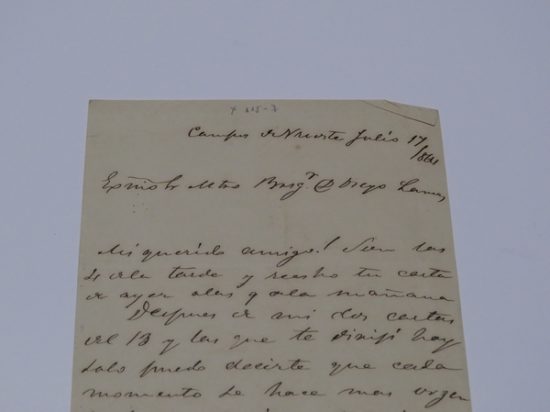 Campo Julio 17
/861
Diego Lamas
Mi querido amigo! Son las
4 de la tarde y recibo tu carta
de ayer a las 9 de la mañana
Despues de mis dos cartas
del 13 y las que te dirijí hoy
solo puedo decirte que cada
momento se hace mas urgen